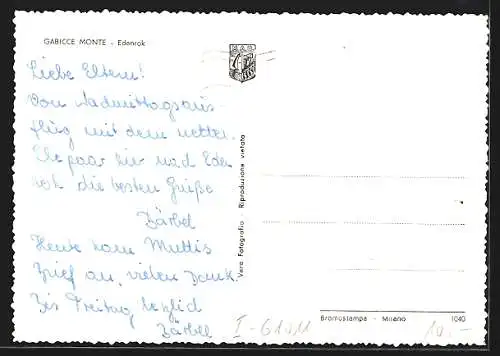 GABICCE MONTE - Edenrok
Liebe Eltern!
Vom Nachmittagsaus-
flug mit dem netten
Ehepaar hier nach Eden
rok die besten Grüße
Bärbel
Heute kam Muttis
Brief an, vielen Dank.
Bis Freitag herzlich
Bärbel
Vera Fotografia - Riproduzione vietata
Bromostampa - Milano
1040
I-61011
10,-